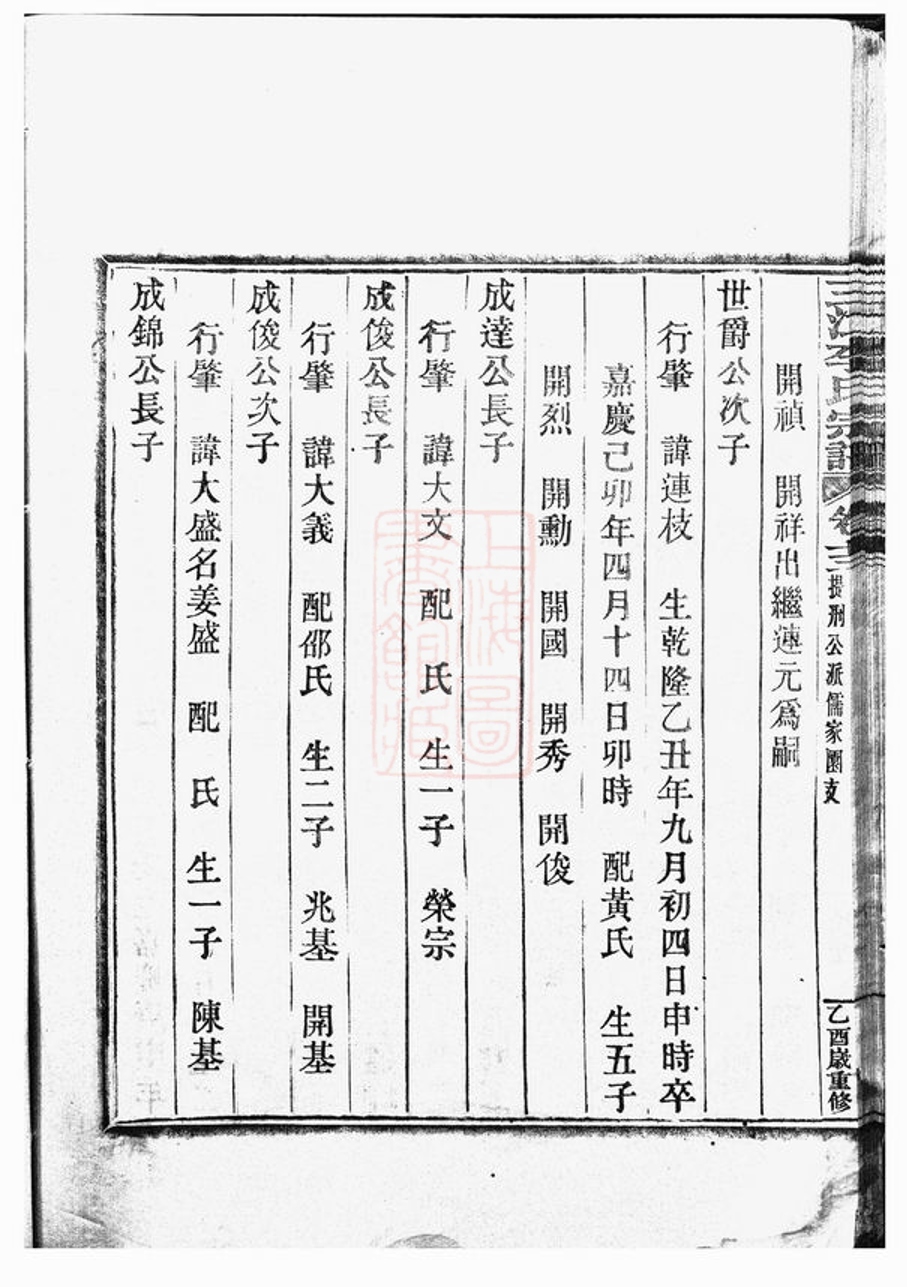 三江李氏宗譜 卷三 提刑公派儒家園支 乙酉歲重修
開禎 開祥出繼蓮元爲嗣
世爵公次子
行肇 諱蓮枝 生乾隆乙丑年九月初四日申時卒
嘉慶己卯年四月十四日卯時 配黃氏 生五子
開烈 開勳 開國 開秀 開俊
成達公長子
行肇 諱大文 配 氏 生一子 榮宗
成俊公長子
行肇 諱大義 配邵氏 生二子 兆基 開基
成俊公次子
行肇 諱大盛名姜盛 配 氏 生一子 陳基
成錦公長子
上海圖書館藏